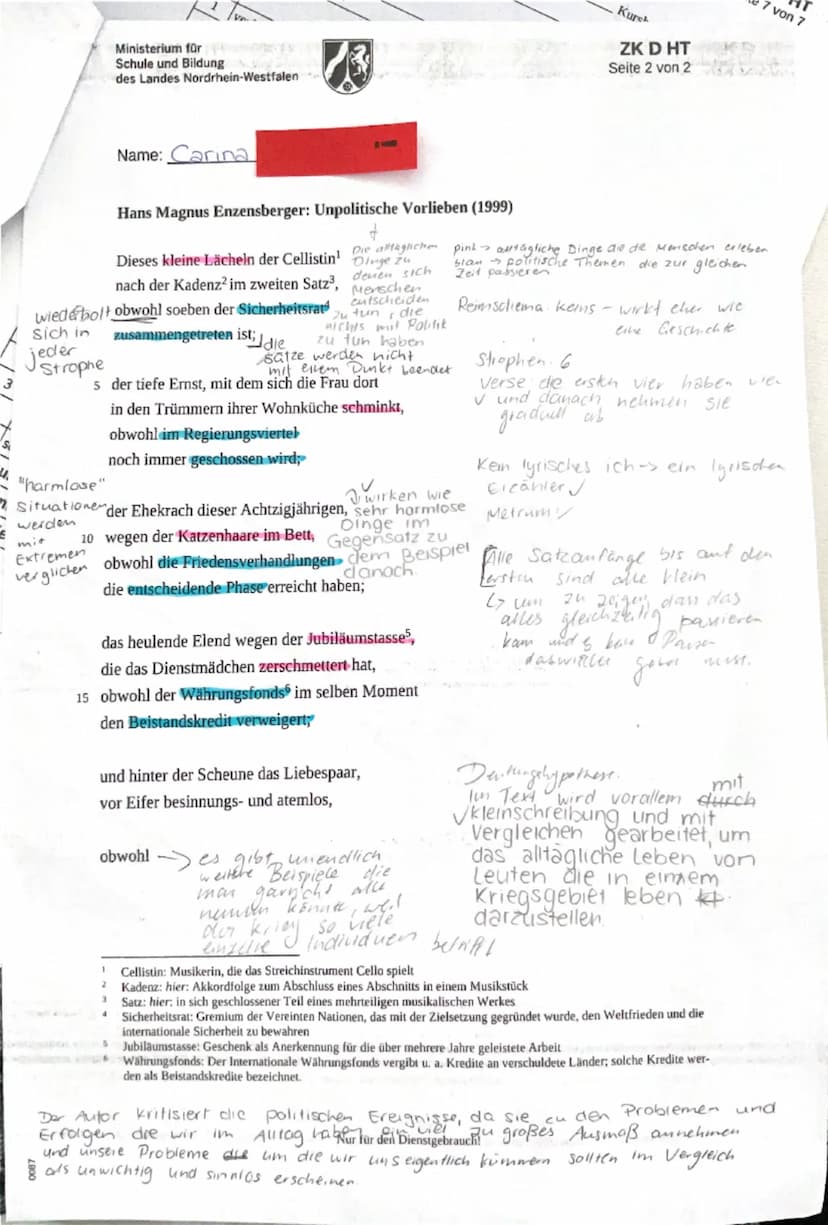 7 von 7
Ministerium für
Schule und Bildung
des Landes Nordrhein-Westfalen
ZK D HT
Seite 2 von 2
Name: Carina
Hans Magnus Enzensberger: Unpolitische Vorlieben (1999)
Dieses kleine Lächeln der Cellistin¹
nach der Kadenz² im zweiten Satz³,
obwohl soeben der Sicherheitsrat⁴
zusammengetreten ist;
5 der tiefe Ernst, mit dem sich die Frau dort
in den Trümmern ihrer Wohnküche schminkt,
obwohl im Regierungsviertel
noch immer geschossen wird;
der Ehekrach dieser Achtzigjährigen,
10 wegen der Katzenhaare im Bett,
obwohl die Friedensverhandlungen
die entscheidende Phase erreicht haben;
das heulende Elend wegen der Jubiläumstasse⁵,
die das Dienstmädchen zerschmettert hat,
15 obwohl der Währungsfonds⁶ im selben Moment
den Beistandskredit verweigert;
und hinter der Scheune das Liebespaar,
vor Eifer besinnungs- und atemlos,
obwohl
wiederholt
sich in
jeder
Strophe
"harmlose"
Situationen
werden
mit
Extremen
verglichen
Die alltäglichen
Dinge zu
denen sich
Menschen
entscheiden
zu tun, die
nichts mit Politik
zu tun haben
die
Sätze werden nicht
mit einem Punkt beendet
wirken wie
sehr harmlose
Dinge im
Gegensatz zu
dem Beispiel
danach
pink -> alltägliche Dinge die die Menschen erleben
blau -> politische Themen die zur gleichen
Zeit passieren
Reimschema: keins - wirkt eher wie
eine Geschichte
Strophen: 6
Verse: die ersten vier haben vier
V und danach nehmen sie
graduell ab
Kein lyrisches ich -> ein lyrischer
Erzähler
Metrum:
Alle Satzanfänge bis auf den
ersten sind alle klein
↳ um zu zeigen, dass das
alles gleichzeitig passieren
kann und es keine Pausen
Deutungshypothese:
Im Text wird vorallem durch mit
kleinschreibung und mit
Vergleichen gearbeitet, um
das alltägliche Leben von
Leuten die in einem
Kriegsgebiet leben
darzustellen.
-> es gibt unendlich
weitere Beispiele die
man garnicht alle
nennen könnte, weil
der Krieg so viele
einzelne Individuen betrifft
¹ Cellistin: Musikerin, die das Streichinstrument Cello spielt
² Kadenz: hier: Akkordfolge zum Abschluss eines Abschnitts in einem Musikstück
³ Satz: hier: in sich geschlossener Teil eines mehrteiligen musikalischen Werkes
⁴ Sicherheitsrat: Gremium der Vereinten Nationen, das mit der Zielsetzung gegründet wurde, den Weltfrieden und die
internationale Sicherheit zu bewahren
⁵ Jubiläumstasse: Geschenk als Anerkennung für die über mehrere Jahre geleistete Arbeit
⁶ Währungsfonds: Der Internationale Währungsfonds vergibt u. a. Kredite an verschuldete Länder; solche Kredite wer-
den als Beistandskredite bezeichnet.
Der Autor kritisiert die politischen Ereignisse, da sie zu den Problemen und
Erfolgen die wir im Alltag haben ein viel zu großes Ausmaß annehmen
Nur für den Dienstgebrauch!
und unsere Probleme die um die wir uns eigentlich kümmern sollten im Vergleich
als unwichtig und sinnlos erscheinen.
0087